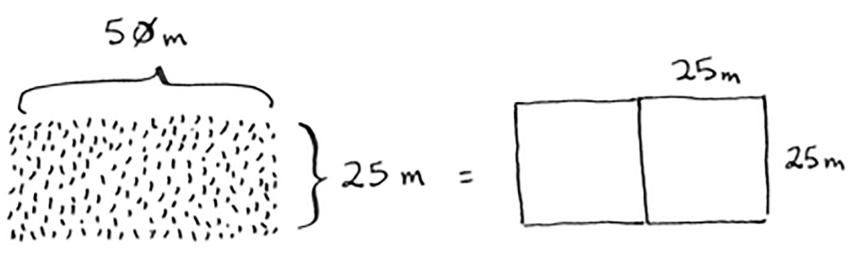 50m
25m
25m = 
25m